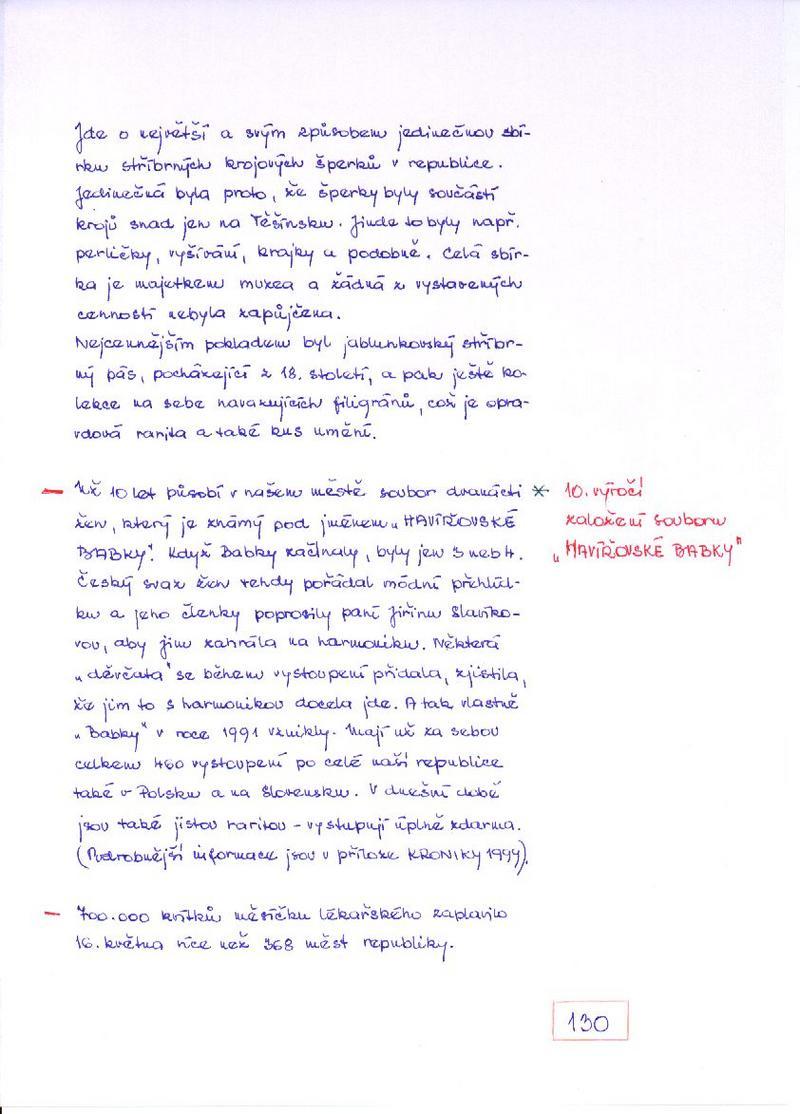 Jde o největší a svým způsobem jedinečnou sbí-
rku stříbrných krojových šperků v republice.
Jedinečná byla proto, že šperky byly součástí
krojů snad jen na Těšínsku. Jinde to byly např.
perličky, vyšívání, krajky a podobně. Celá sbír-
ka je majetkem muzea a žádná z vystavených
cenností nebyla zapůjčena.
Nejcennějším pokladem byl jablunkovský stříbr-
ný pás, pocházející z 18. století, a pak ještě ko-
lekce na sebe navazujících filigránů, což je opra-
vdová rarita a také kus umění.
– Už 10 let působí v našem městě soubor dvanácti *
žen, který je známý pod jménem „HAVÍŘOVSKÉ
BABKY". Když Babky začínaly, byly jen 3 neb 4.
Český svaz žen tehdy pořádal módní přehlíd-
ku a jeho členky poprosily paní Jiřinu Slavíko-
vou, aby jim zahrála na harmoniku. Některá
„děvčata" se během vystoupení přidala, zjistila,
že jim to s harmonikou docela jde. A tak vlastně
„Babky" v roce 1991 vznikly. Mají už za sebou
celkem 460 vystoupení po celé naší republice
také v Polsku a na Slovensku. V dnešní době
jsou také jistou raritou – vystupují úplně zdarma.
(Podrobnější informace jsou v příloze KRONIKY 1994).
10. výročí
založení souboru
„HAVÍŘOVSKÉ BABKY"
– 700.000 kvítků měsíčku lékařského zaplavilo
16. května více než 368 měst republiky.
130